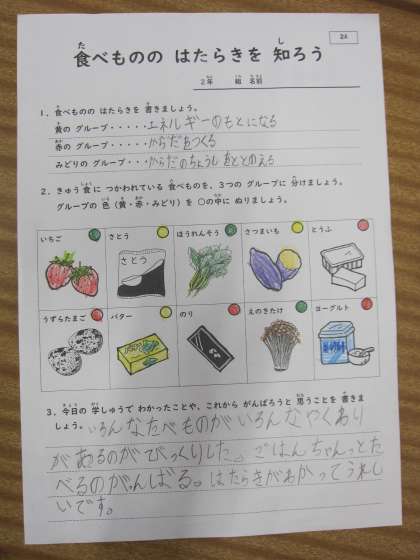 24
食べものの はたらきを 知ろう
2年 組 名前
1. 食べものの はたらきを 書きましょう。
黄の グループ・・・・・エネルギーのもとになる
赤の グループ・・・・・からだをつくる
みどりの グループ・・・からだのちょうしをととのえる
2. きゅう食に つかわれている 食べものを、3つの グループに 分けましょう。
グループの 色(黄・赤・みどり)を ○の中に ぬりましょう。
いちご さとう ほうれんそう さつまいも とうふ
さとう
うずらたまご バター のり えのきたけ ヨーグルト
3. 今日の 学しゅうで わかったことや、これから がんばろうと 思うことを 書きま
しょう。いろんなたべものがいろんなやくわり
があるのがびっくりした。ごはんちゃんとた
べるのがんばる。はたらきがわかってうれし
いです。